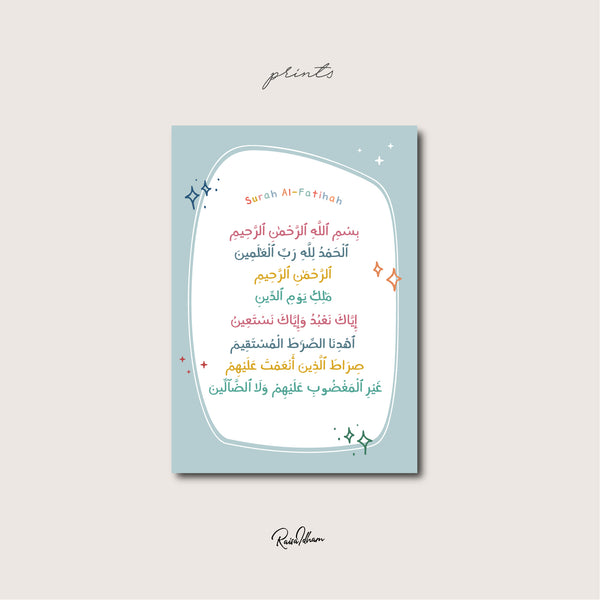 prints
Surah Al-Fatihah
بِسْمِ ٱللَّهِ ٱلرَّحْمَٰنِ ٱلرَّحِيمِ
ٱلْحَمْدُ لِلَّهِ رَبِّ ٱلْعَٰلَمِينَ
ٱلرَّحْمَٰنِ ٱلرَّحِيمِ
مَٰلِكِ يَوْمِ ٱلدِّينِ
إِيَّاكَ نَعْبُدُ وَإِيَّاكَ نَسْتَعِينُ
ٱهْدِنَا ٱلصِّرَٰطَ ٱلْمُسْتَقِيمَ
صِرَاطَ ٱلَّذِينَ أَنْعَمْتَ عَلَيْهِمْ
غَيْرِ ٱلْمَغْضُوبِ عَلَيْهِمْ وَلَا ٱلضَّآلِّينَ
RaisaIdham